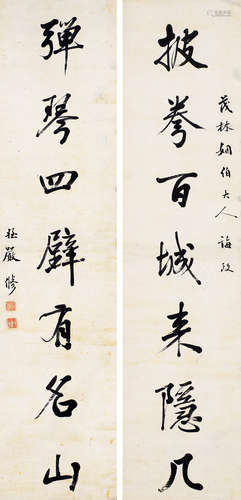 茂林姻伯大人诲政
披拳百城来隐几
弹琴四壁有名山
侄严修